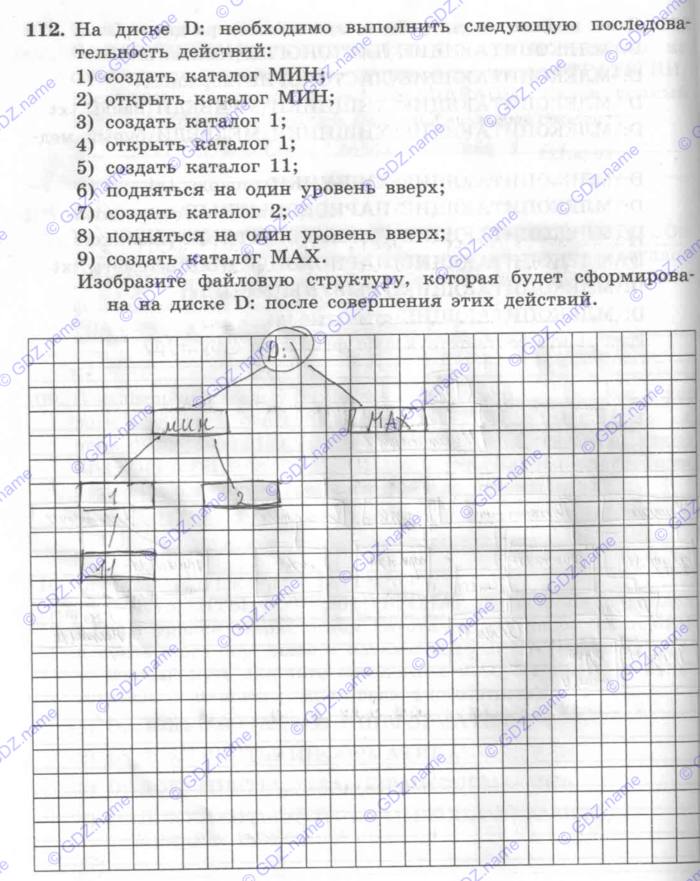 112. На диске D: необходимо выполнить следующую последова-
тельность действий:
1) создать каталог МИН;
2) открыть каталог МИН;
3) создать каталог 1;
4) открыть каталог 1;
5) создать каталог 11;
6) подняться на один уровень вверх;
7) создать каталог 2;
8) подняться на один уровень вверх;
9) создать каталог МАХ.
Изобразите файловую структуру, которая будет сформирова-
на на диске D: после совершения этих действий.
D:\
МИН
МАХ
1
2
11
© GDZ.name